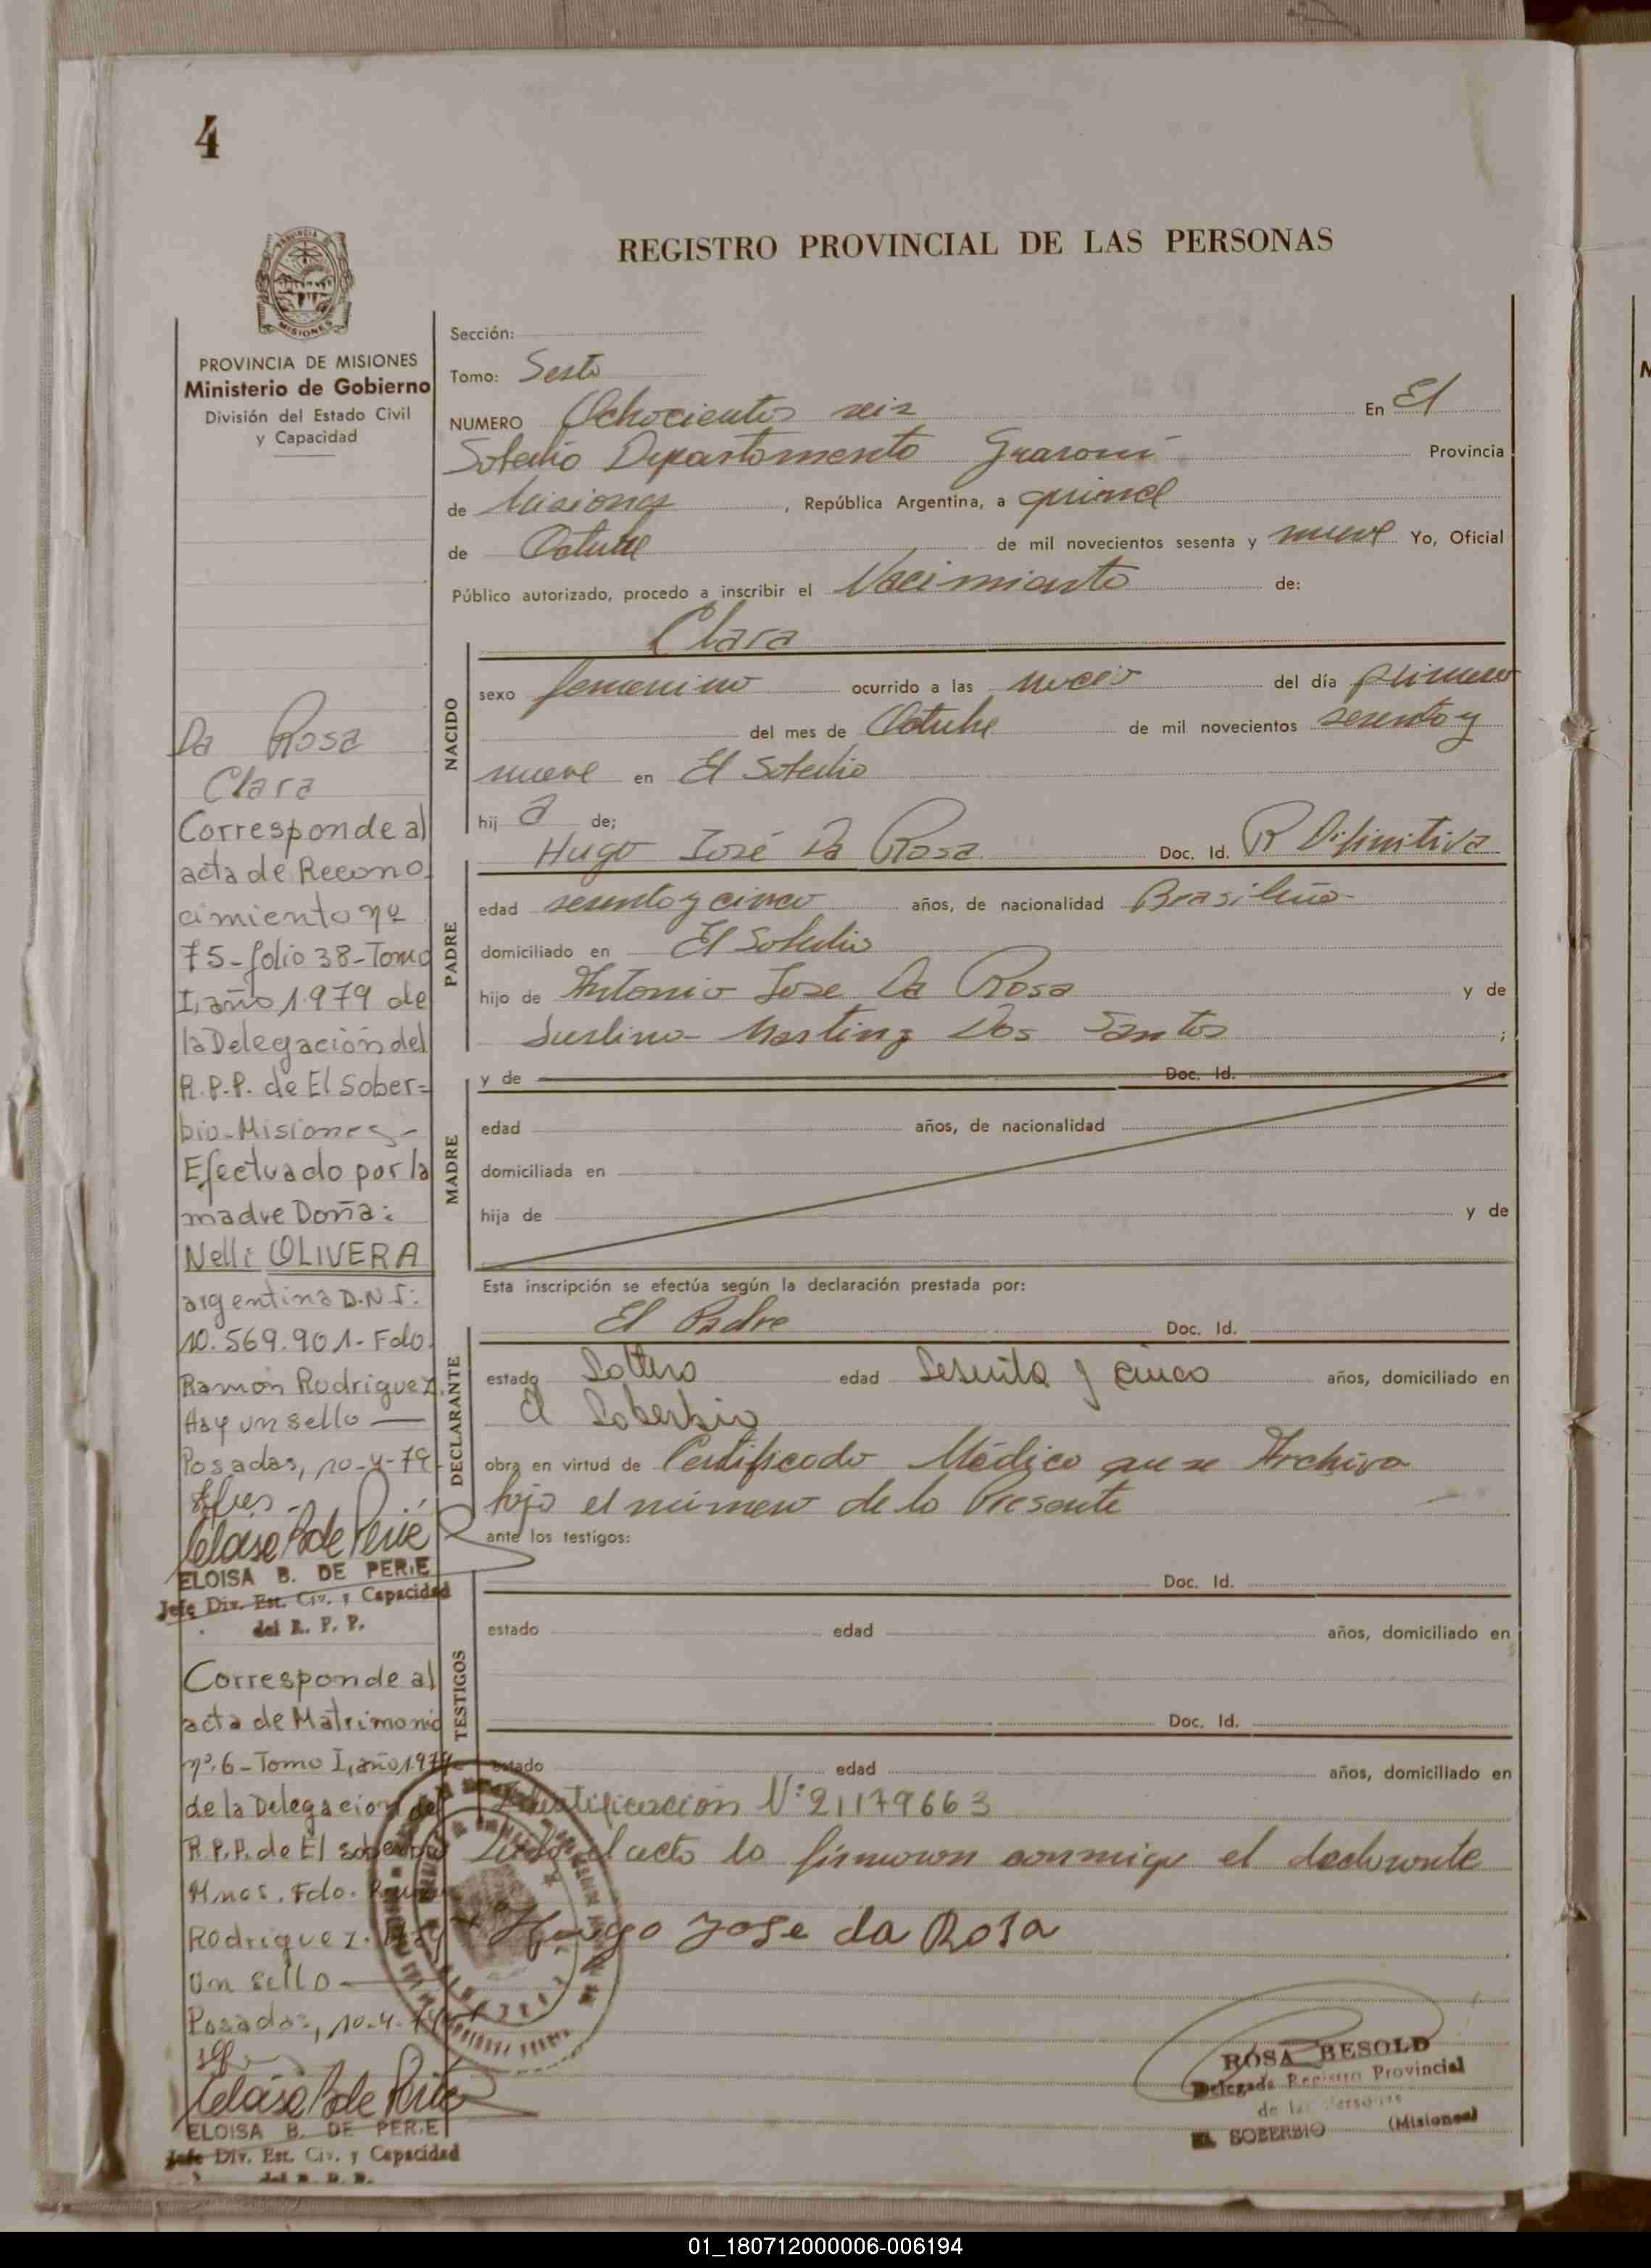 4
PROVINCIA
MISIONES
REGISTRO PROVINCIAL DE LAS PERSONAS
PROVINCIA DE MISIONES
Ministerio de Gobierno
División del Estado Civil
y Capacidad
Da Rosa
Clara
Corresponde al
acta de Recono
cimiento nº
75-folio 38-Tomo
I, año 1.979 de
la Delegación del
R.P.P. de El Sober=
bio-Misiones-
Efectuado por la
madre Doña:
Nelli OLIVERA
argentina D.N.I:
10.569.901- Fdo.
Ramón Rodriguez.
Hay un sello —
Posadas, 10-4-79
ELOISA B. DE PERIE
Jefe Div. Est. Civ. y Capacidad
del R. P. P.
Corresponde al
acta de Matrimonio
nº.6-Tomo I, año 1.979
de la Delegacion del
R.P.P. de El soberbio
Mnes. Fdo.
Rodriguez. Hay
un sello —
Posadas, 10-4-79
ELOISA B. DE PERIE
Jefe Div. Est. Civ. y Capacidad
del R. P. P.
Sección:
Tomo: Sesto
NUMERO Ochocientos seis En El
Soberbio Departamento Guaraní Provincia
de Misiones, República Argentina, a quince
de Octubre de mil novecientos sesenta y nueve Yo, Oficial
Público autorizado, procedo a inscribir el Nacimiento de:
Clara
NACIDO
sexo femenino ocurrido a las del día primero
del mes de Octubre de mil novecientos sesenta y
nueve en El Soberbio
hij a de;
Hugo José Da Rosa Doc. Id. R Difinitiva
PADRE
edad sesenta y cinco años, de nacionalidad Brasileño
domiciliado en El Soberbio
hijo de Antonio Jose Da Rosa y de
Martinz Dos Santos ;
MADRE
y de Doc. Id.
edad años, de nacionalidad
domiciliada en
hija de y de
Esta inscripción se efectúa según la declaración prestada por:
El Padre Doc. Id.
DECLARANTE
estado Soltero edad Sesenta y cinco años, domiciliado en
El Soberbio
obra en virtud de Certificado Médico que se Archiva
bajo el número de la Presente
ante los testigos:
Doc. Id.
TESTIGOS
estado edad años, domiciliado en
Doc. Id.
estado edad años, domiciliado en
Identificación Nº 21179663
Leida el acta la firmaron conmigo el declarante
Hugo Jose da Rosa
ROSA BESOLD
Delegada Registro Provincial
de las Personas
EL SOBERBIO (Misiones)
01_180712000006-006194